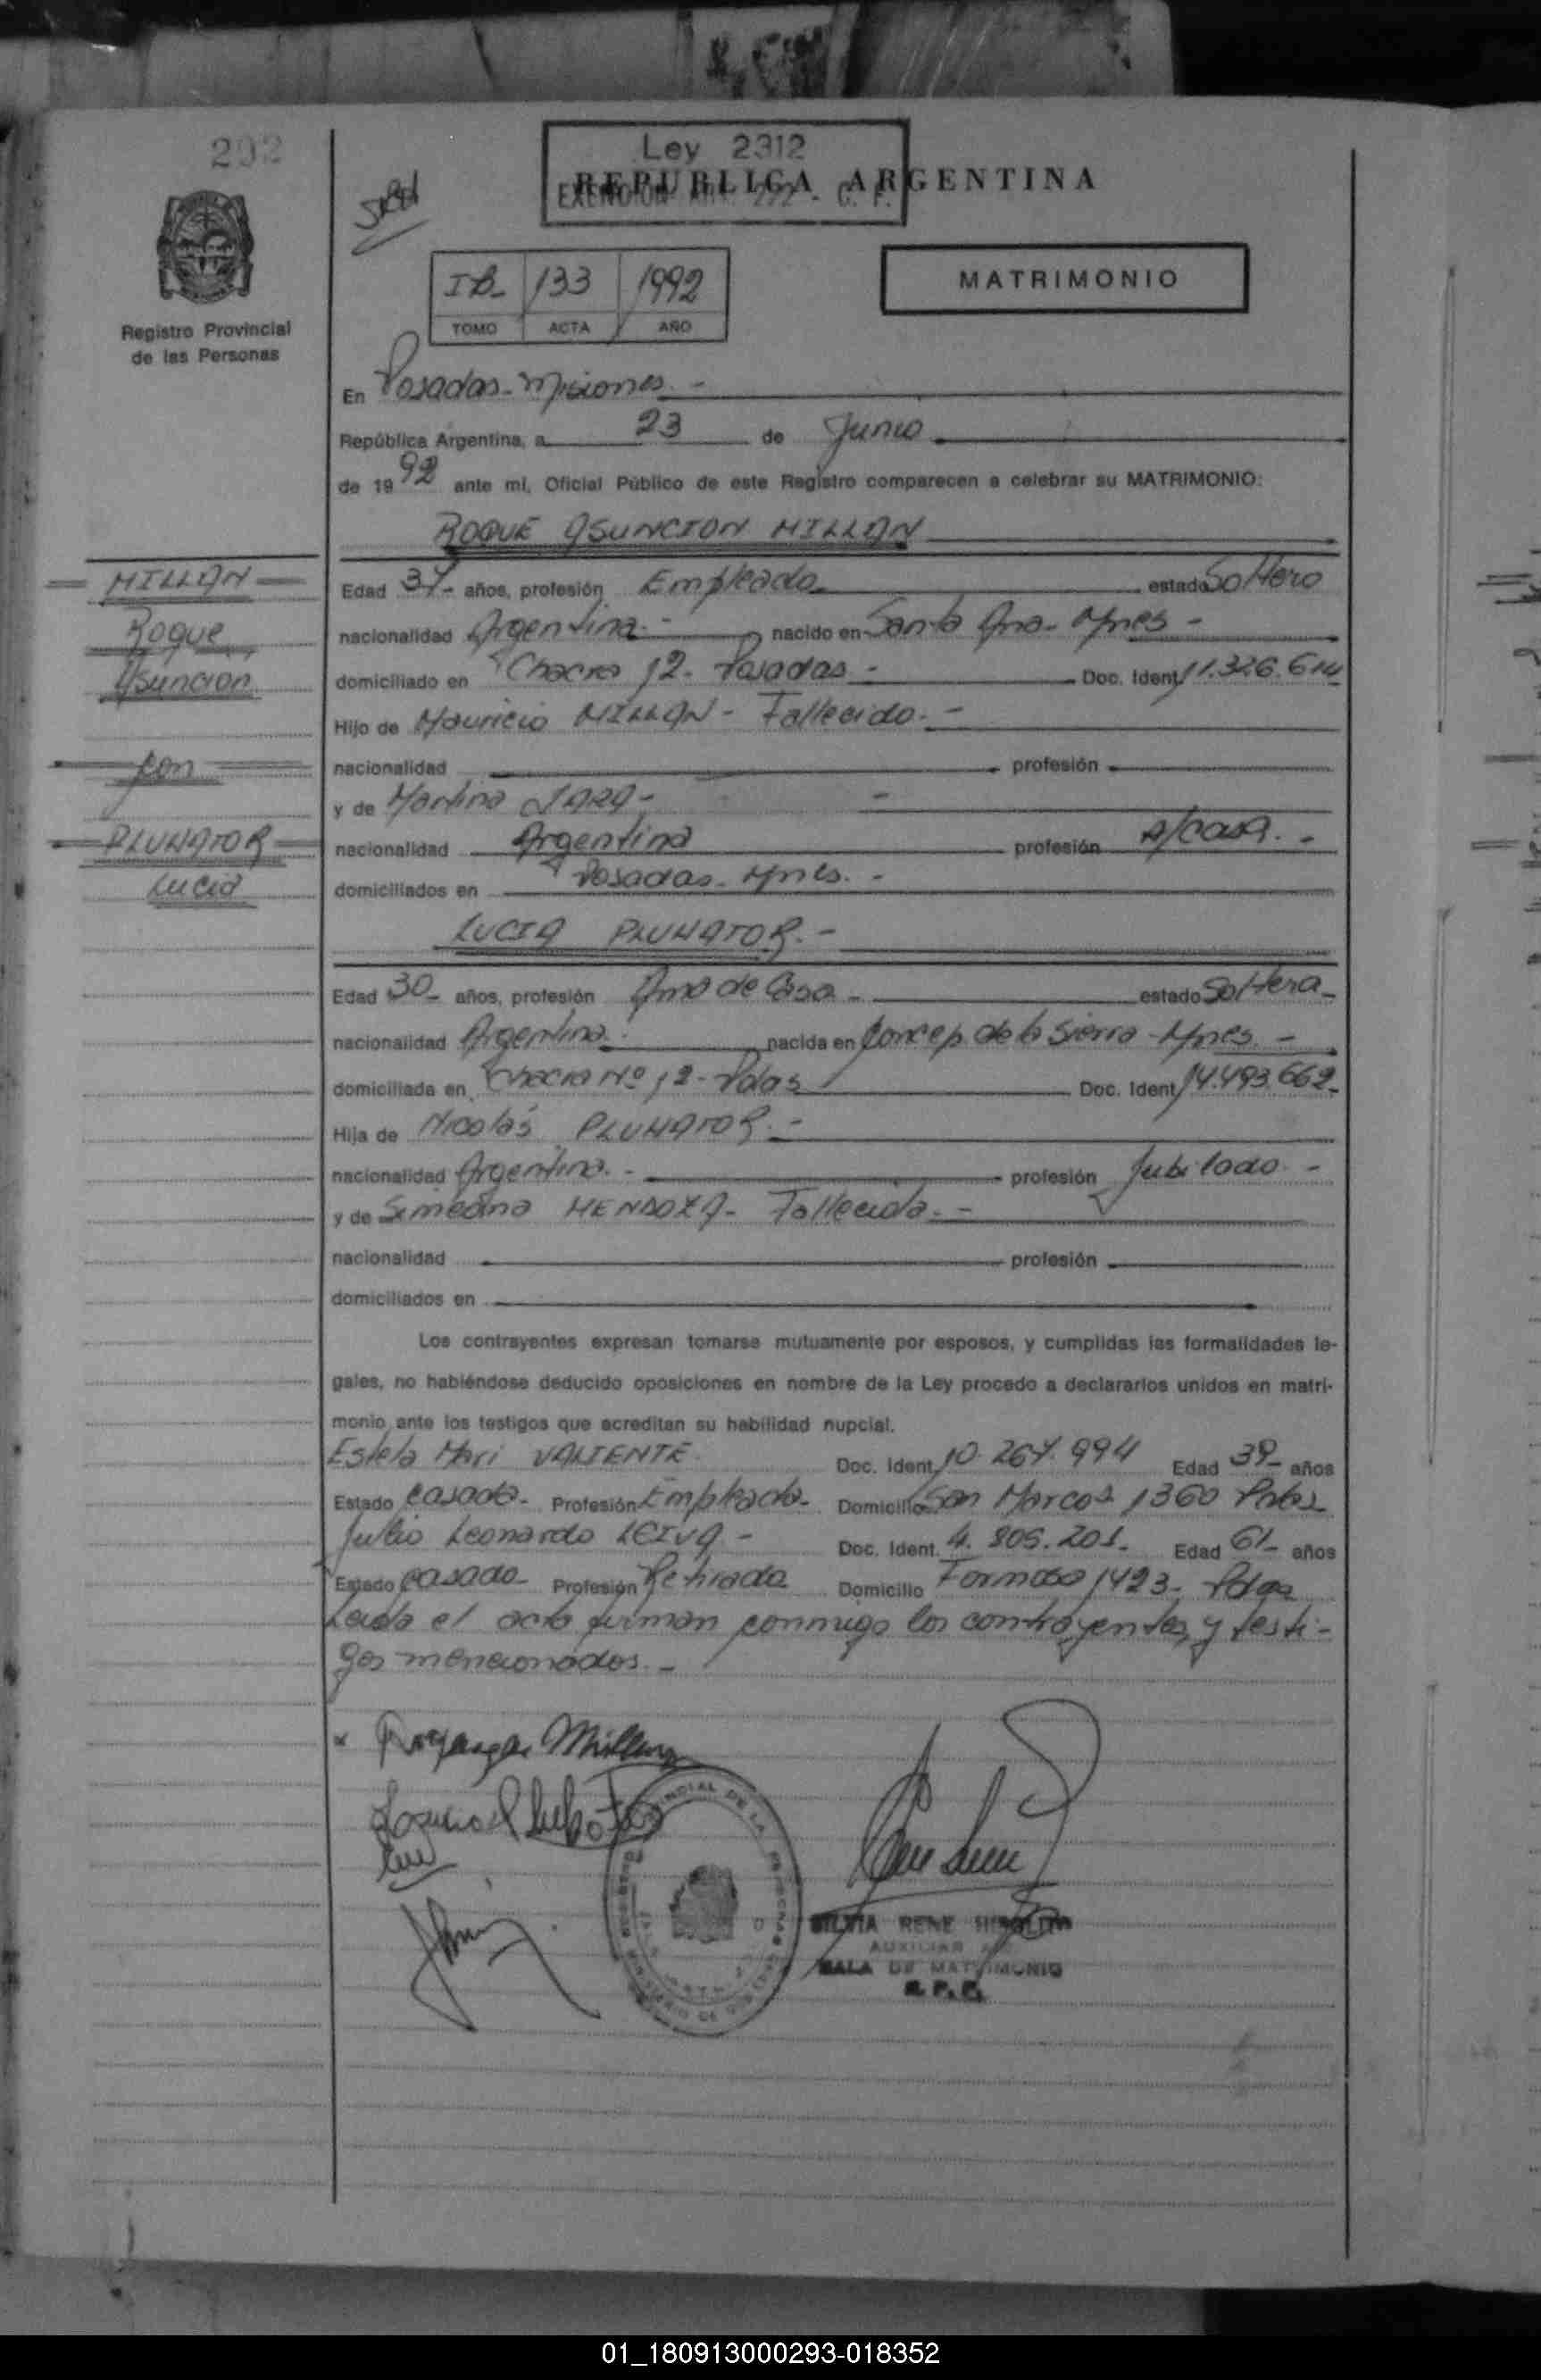 292
Ley 2312
REPUBLICA ARGENTINA
EXENCION ART. 222 - C. F.
I B- 133 1992
TOMO ACTA AÑO
MATRIMONIO
Registro Provincial
de las Personas
En Posadas - Misiones. -
República Argentina, a 23 de Junio
de 1992 ante mí, Oficial Público de este Registro comparecen a celebrar su MATRIMONIO:
ROQUE ASUNCION MILLAN
MILLAN
Roque
Asunción
con
PLUHATOR
Lucia
Edad 37- años, profesión Empleado estado Soltero
nacionalidad Argentina. - nacido en Santa Ana - Mnes -
domiciliado en Chacra 12 - Posadas - Doc. Ident. 11.326.614
Hijo de Mauricio MILLAN - Fallecido. -
nacionalidad profesión
y de Martina JARA - -
nacionalidad Argentina profesión a/casa. -
domiciliados en Posadas - Mnes. -
LUCIA PLUHATOR. -
Edad 30- años, profesión Ama de Casa - estado Soltera -
nacionalidad Argentina. nacida en Concep. de la Sierra - Mnes. -
domiciliada en Chacra Nº 12 - Pdas Doc. Ident. 14.493.662-
Hija de Nicolás PLUHATOR. -
nacionalidad Argentina. - profesión Jubilado -
y de Simeona MENDOZA - Fallecida. -
nacionalidad profesión
domiciliados en
Los contrayentes expresan tomarse mutuamente por esposos, y cumplidas las formalidades le-
gales, no habiéndose deducido oposiciones en nombre de la Ley procedo a declararlos unidos en matri-
monio ante los testigos que acreditan su habilidad nupcial.
Estela Mari VALIENTE Doc. Ident. 10.267.994 Edad 39- años
Estado Casada - Profesión Empleada - Domicilio San Marcos 1360 Pdas
Julio Leonardo LEIVA - Doc. Ident. 4.805.201- Edad 61- años
Estado Casado - Profesión Retirado Domicilio Formosa 1423 - Pdas
Leida el acta firman conmigo los contrayentes y testi-
gos mencionados. -
SILVIA RENE
AUXILIAR
SALA DE MATRIMONIO
R.P.P.
01_180913000293-018352